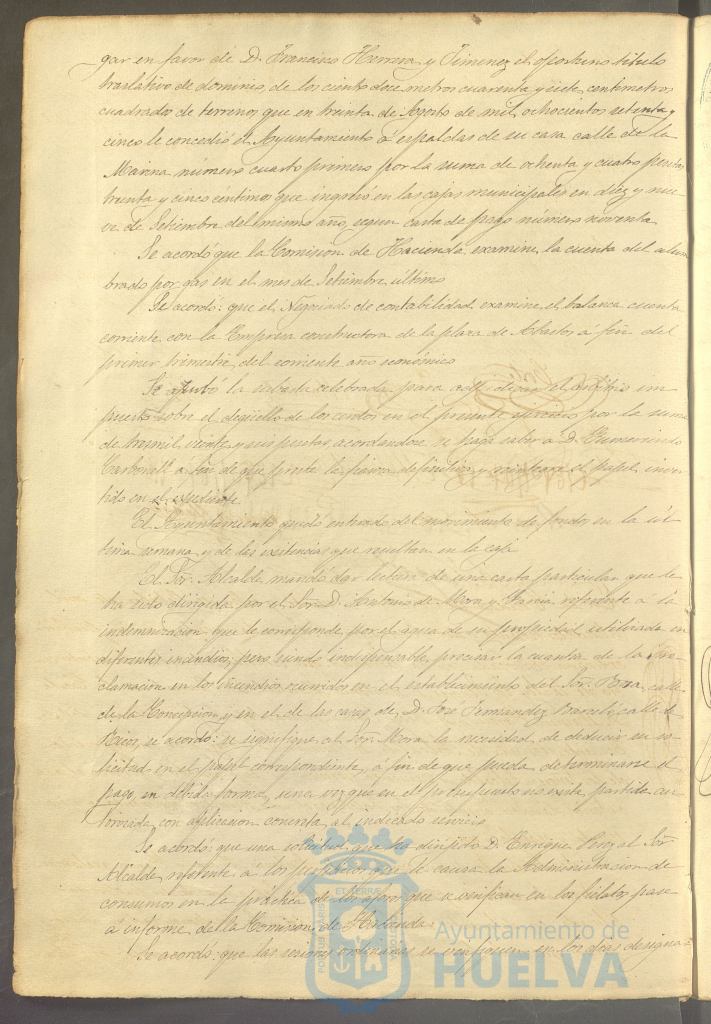 gar en favor de D. Francisco Herrera y Jimenez el oportuno titulo
traslativo de dominio, de los ciento doce metros cuarenta y siete centimetros
cuadrados de terrenos que en treinta de Agosto de mil ochocientos setenta y
cinco le concedió el Ayuntamiento á espaldas de su casa calle de la
Marina número cuarto primero por la suma de ochenta y cuatro pesetas
treinta y cinco céntimos que ingresó en las cajas municipales en diez y nue-
ve de Setiembre del mismo año, segun carta de pago número noventa
Se acordó que la Comision de Hacienda examine la cuenta del alum
brado por gas en el mes de Setiembre último
Se acordó: que el Negociado de contabilidad examine el balance cuenta
corriente con la Empresa constructora de la plaza de Abastos á fin del
primer trimestre del corriente año económico
Se aprobó la subasta celebrada para el arbitrio im
puesto sobre el degüello de los cerdos en el presente ejercicio por la suma
de tresmil veinte y seis pesetas acordandose se haga saber á D. Gumersindo
Carbonell á fin de que preste la fianza definitiva y reintegre el papel inver
tido en el expediente
El Ayuntamiento quedó entrado del movimiento de fondos en la úl
tima semana y de las existencias que resultan en la caja
El Sor. Alcalde mandó dar lectura de una carta particular que le
ha sido dirigida por el Sor. D. Antonio de Mora y Garcia referente á la
indemnizacion que le corresponde por el agua de su propiedad utilizada en
diferentes incendios; pero siendo indispensable precisar la cuantia de la re-
clamacion en los incendios ocurridos en el establecimiento del Sor. calle
de la Concepcion y en el de las casas de D. José Fernandez calle de
Ricos, se acordó: se signifique al Sor. Mora la necesidad de deducir su so-
licitud en el papel correspondiente, á fin de que pueda determinarse el
pago, en debida forma, una vez que en el presupuesto no existe partida au
torizada con aplicacion concreta al indicado servicio
Se acordó: que una solicitud que ha dirijido D. Enrique Perez al Sor
Alcalde referente á los perjuicios que le causa la Administracion de
consumos en la práctica de los aforos que se verifican en los fielatos pase
á informe de la Comision de Hacienda
Se acordó: que las sesiones ordinarias se verifiquen en los dias designa-
Ayuntamiento de
HUELVA